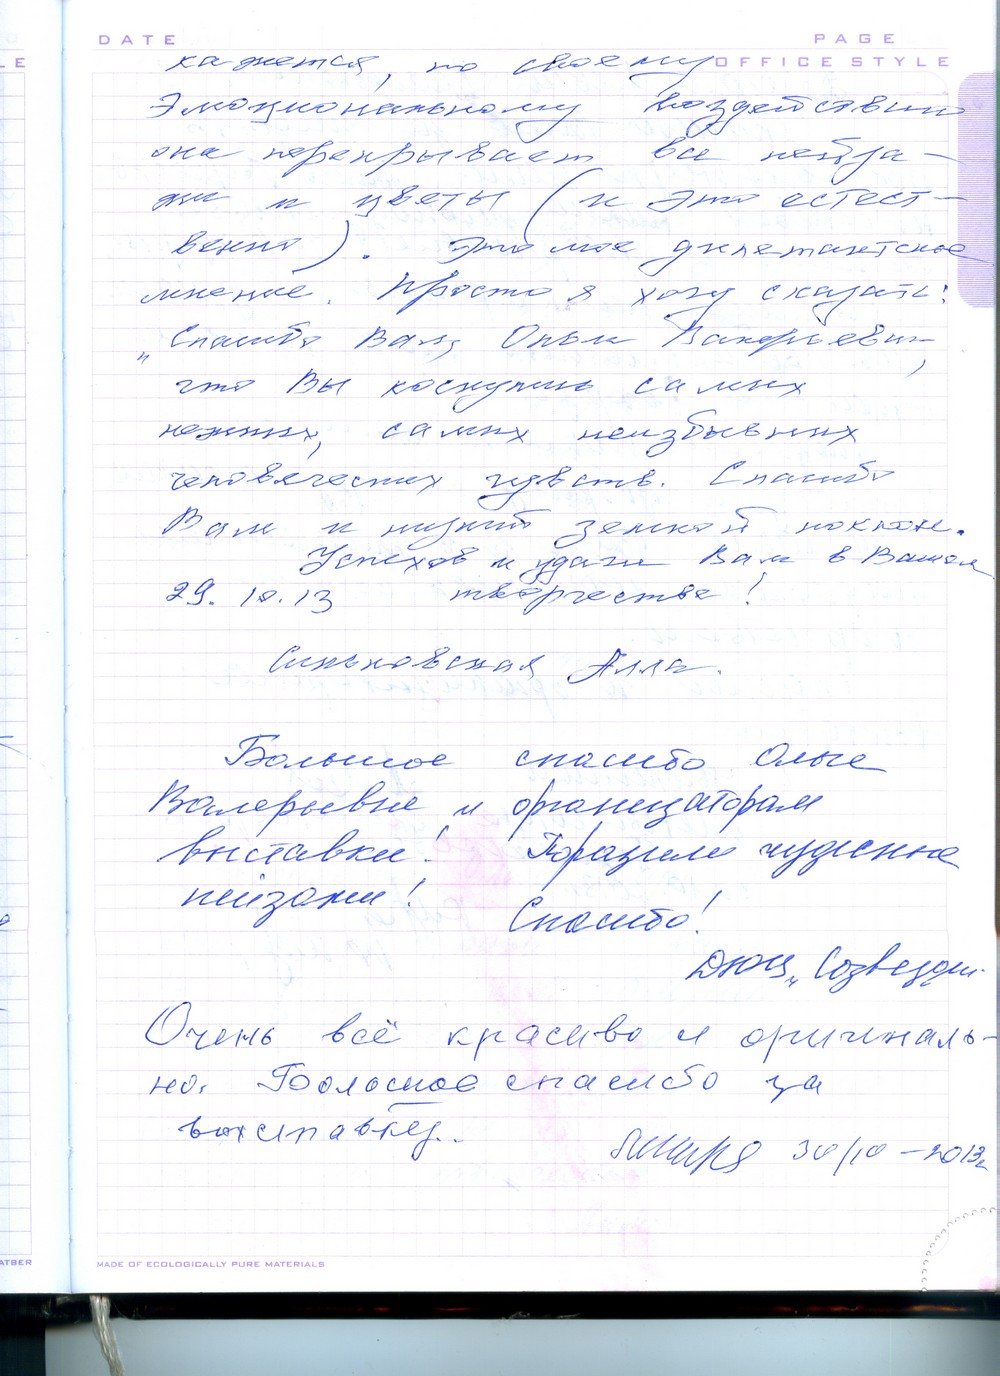 DATE
PAGE
OFFICE STYLE
LE
кажется, по своему
эмоциональному воздействию
она перекрывает все пейза-
жи и цветы (и это естест-
венно). Это мое дилетантское
мнение. Просто я хочу сказать:
„Спасибо Вам, Ольга Валерьевн-
что Вы коснулись самых
нежных, самых неизбывных
человеческих чувств. Спасибо
Вам и низкий земной поклон.
Успехов и удачи Вам в Вашем
29.10.13 творчестве!
Алла.
Большое спасибо Ольге
Валерьевне и организаторам
выставки! Поразили чудесные
пейзажи!
Спасибо!
ДЮЦ „Созвездие
Очень всё красиво и оригиналь-
но. Болошое спасибо за
выставку..
30/10-2013г
ATBER
MADE OF ECOLOGICALLY PURE MATERIALS